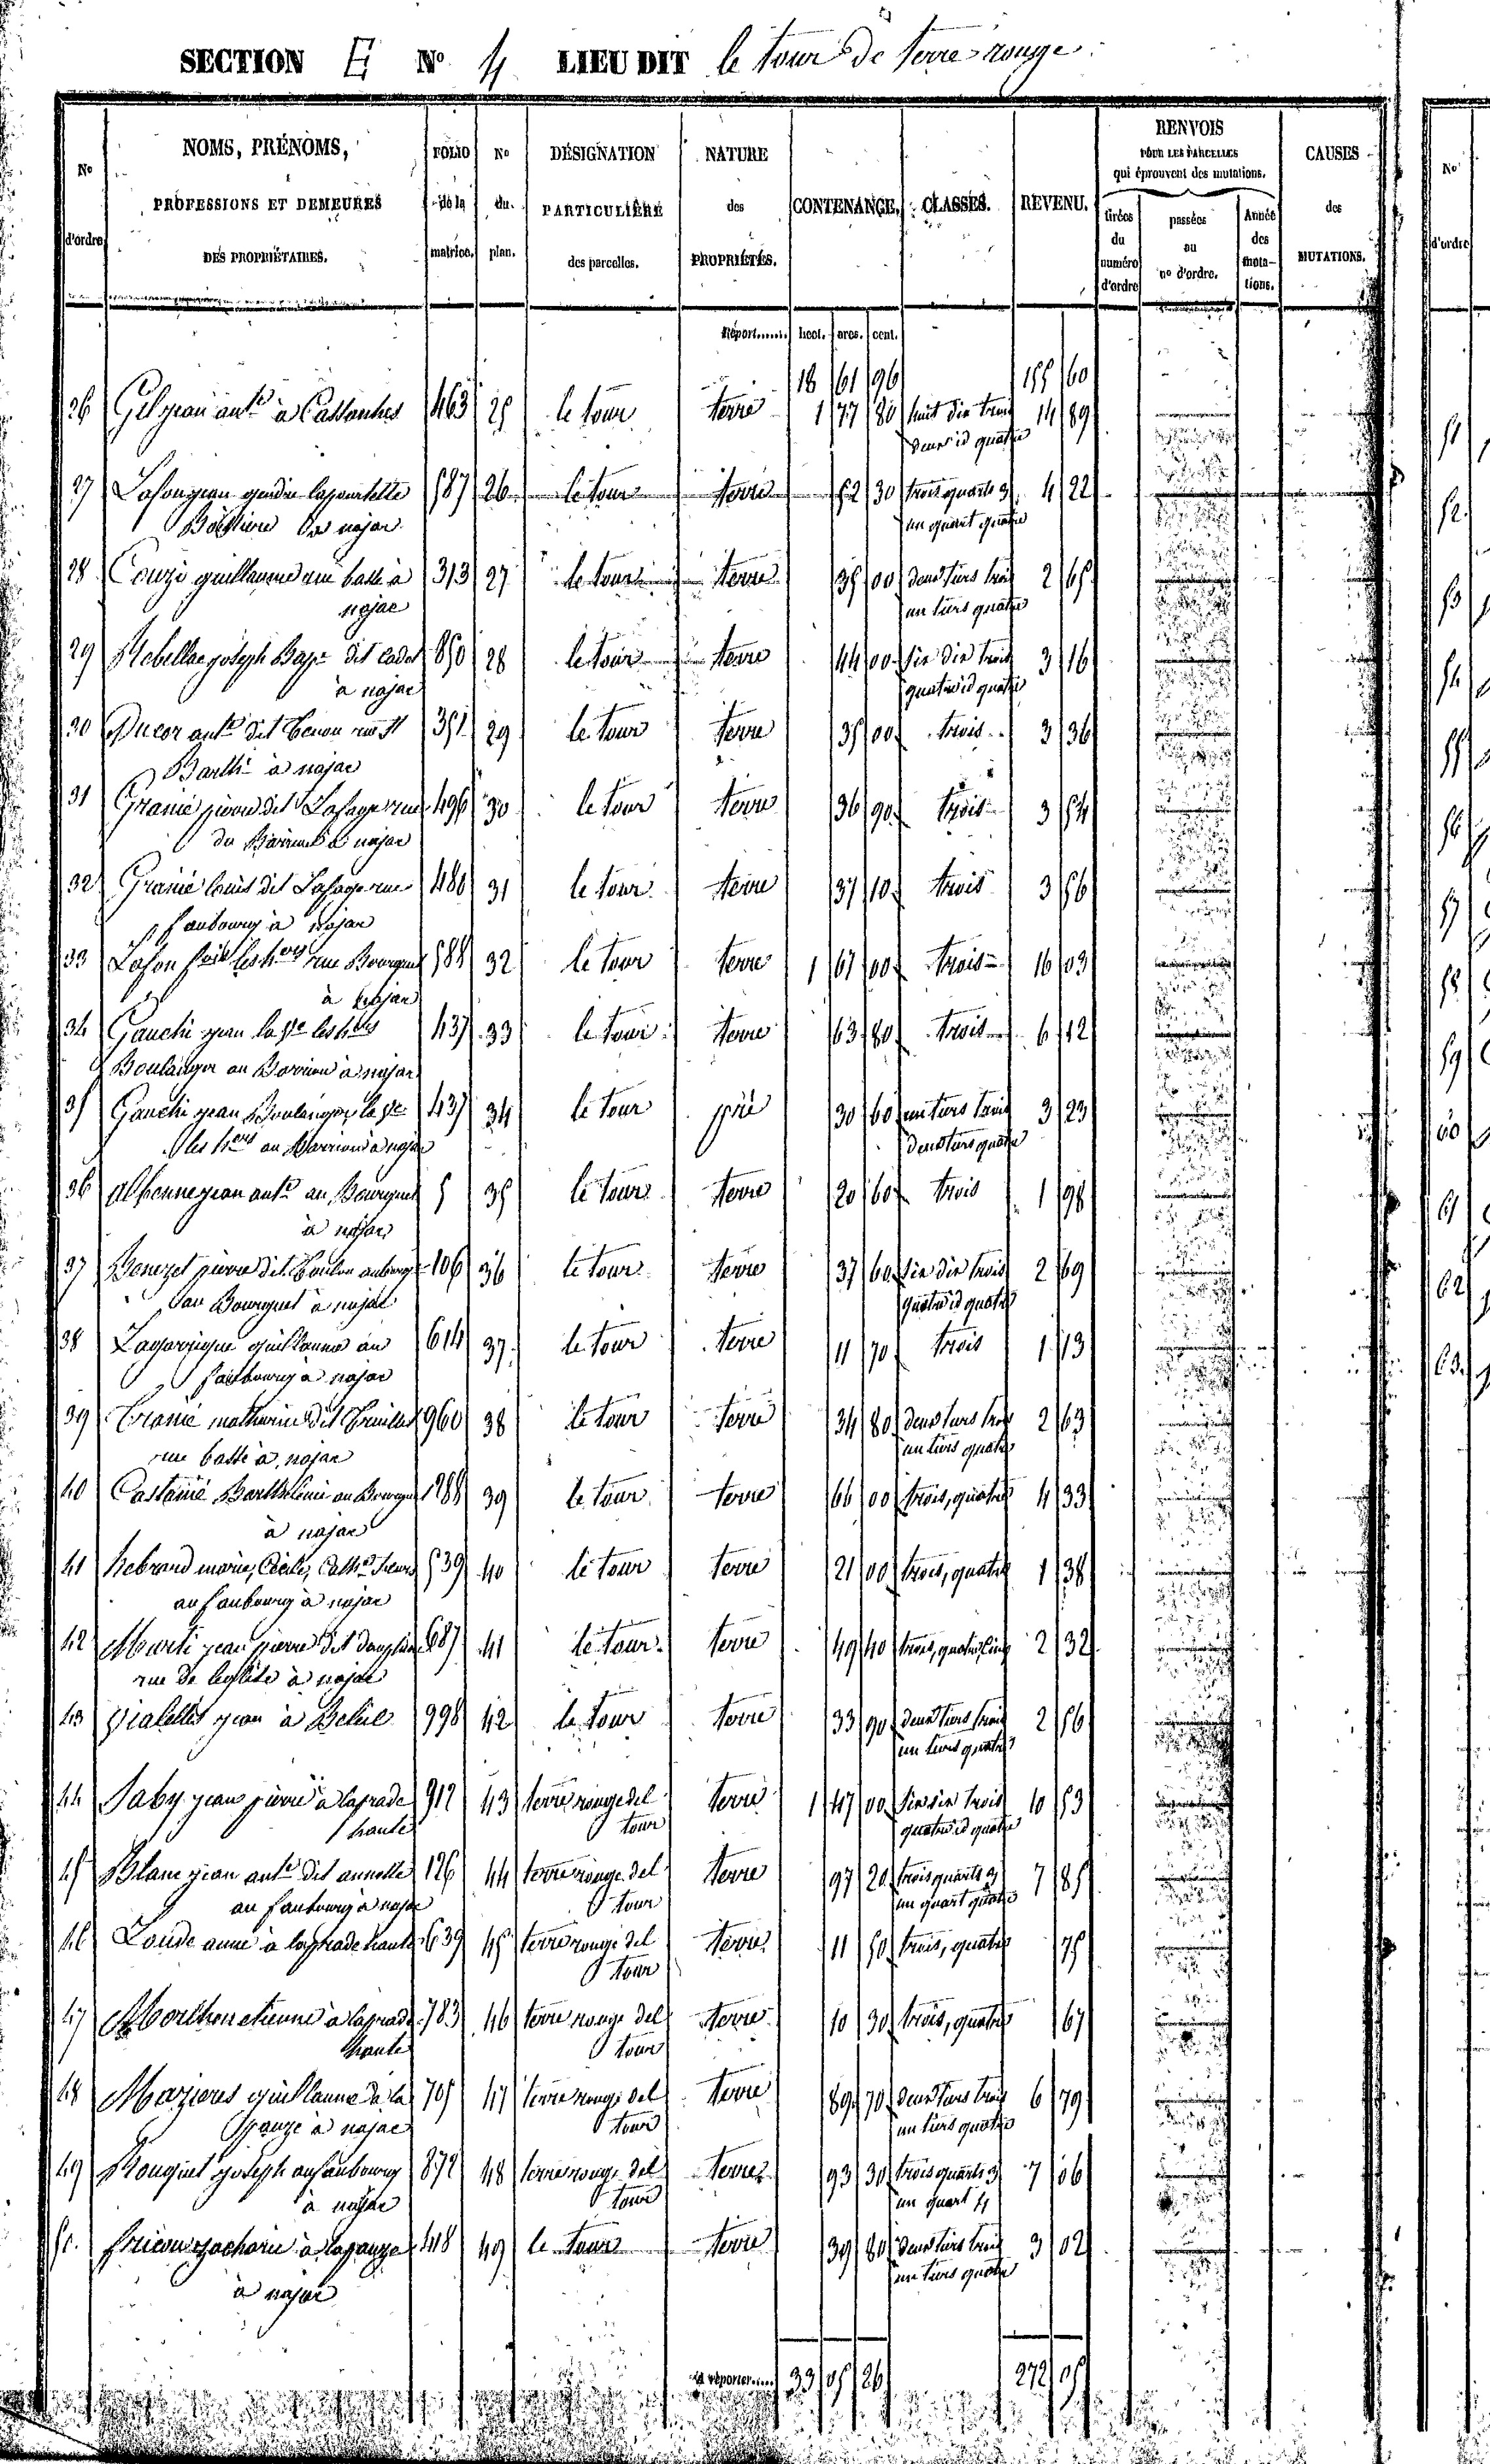 SECTION E No 4 LIEU DIT le tour de terre-rouge
No d'ordre
NOMS, PRÉNOMS, PROFESSIONS ET DEMEURES DES PROPRIÉTAIRES.
FOLIO de la matrice.
No du plan.
DÉSIGNATION PARTICULIÈRE des parcelles.
NATURE des PROPRIÉTÉS.
CONTENANCE.
CLASSES.
REVENU.
RENVOIS POUR LES PARCELLES qui éprouvent des mutations.
tirées du numéro d'ordre
passées au no d'ordre.
Année des mutations.
CAUSES des MUTATIONS.
No d'ordre
Report...... hect. ares. cent.
18 61 96 155 60
26 Gil jean ante à Cassanhes 463 25 le tour terre 1 77 80 huit dix trois 14 89
deux id quatre
27 Lafon jean gendre 587 26 le tour terre 52 30 trois quarts 3 4 22
najac un quart quatre
28 Couzi guillaume rue basse à 313 27 le tour terre 35 00 deux tiers trois 2 65
najac un tiers quatre
29 Rebellac joseph Bapte dit cadet 850 28 le tour terre 44 00 six dix trois 3 16
à najac quatre id quatre
30 Ducor ante dit rue St 351 29 le tour terre 35 00 trois 3 36
Barthi à najac
31 Granié pierre dit Lafage rue 496 30 le tour terre 36 90 trois 3 54
du Barrieu à najac
32 Granié louis dit Lafage rue 480 31 le tour terre 37 10 trois 3 56
faubourg à najac
33 Lafon les hers rue Bourguet 588 32 le tour terre 1 67 00 trois 16 03
à najac
34 Gauchi jean les hers 437 33 le tour terre 63 80 trois 6 12
Boulanger au Barrieu à najac
35 Gauchi jean Boulanger 437 34 le tour pré 30 60 un tiers trois 3 23
les hers au Barrieu à najac deux tiers quatre
36 albenne jean ante au Bourguet 5 35 le tour terre 20 60 trois 1 98
à najac
37 Benezet pierre dit 106 36 le tour terre 37 60 six dix trois 2 69
au Bourguet à najac quatre id quatre
38 Lagarrigue guillaume au 614 37 le tour terre 11 70 trois 1 13
faubourg à najac
39 mathurin dit 960 38 le tour terre 34 80 deux tiers trois 2 63
rue basse à najac un tiers quatre
40 Castanié Barthélémi au Bourguet 1288 39 le tour terre 66 00 trois, quatre 4 33
à najac
41 hebrard marie, Cécile, Cathe sœurs 539 40 le tour terre 21 00 trois, quatre 1 38
au faubourg à najac
42 Murti jean pierre dit dauphiné 687 41 le tour terre 49 40 trois, quatre, cinq 2 32
rue de l'église à najac
43 Vialettes jean à 998 42 le tour terre 33 90 deux tiers trois 2 56
un tiers quatre
44 Saby jean pierre à laprade 912 43 terre rouge del terre 1 47 00 six dix trois 10 53
haute tour quatre id quatre
45 Blanc jean ante dit 126 44 terre rouge del terre 97 20 trois quarts 3 7 85
au faubourg à najac tour un quart quatre
46 Loude anne à laprade haute 639 45 terre rouge del terre 11 50 trois, quatre 75
tour
47 Morlhon etienne à laprade 783 46 terre rouge del terre 10 30 trois, quatre 67
haute tour
48 Mazieres guillaume à la 705 47 terre rouge del terre 89 70 deux tiers trois 6 79
pauze à najac tour un tiers quatre
49 Rouquet joseph au faubourg 872 48 terre rouge del terre 93 30 trois quarts 3 7 06
à najac tour un quart 4
50. zacharie à lapauze 418 49 le tour terre 39 80 deux tiers trois 3 02
à najac un tiers quatre
A reporter..... 33 05 26 272 05